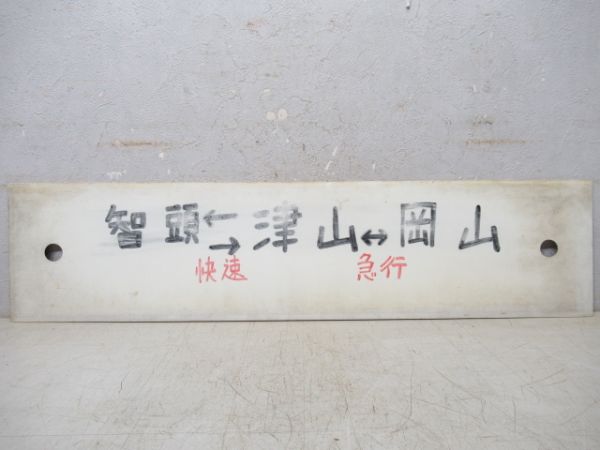 智頭⇆津山↔岡山
快速 急行